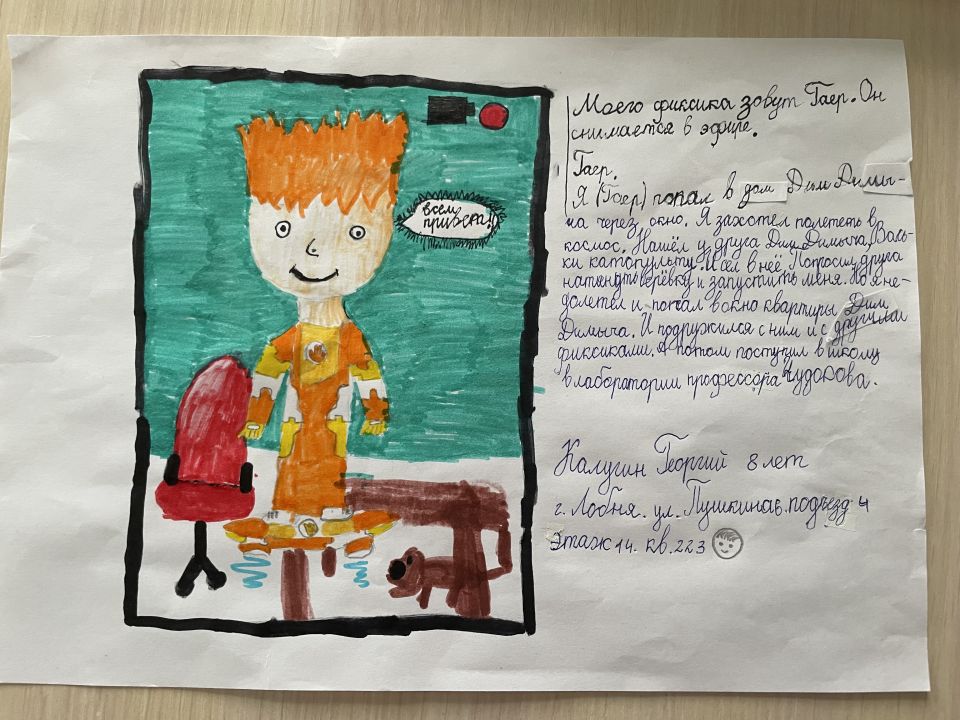 всем
привера!
Моего фиксика зовут Гаер. Он
снимается в эфире.
Гаер.
Я (Гаер) попал в дом Дим Димы-
ча через окно. Я захотел полететь в
космос. Нашёл у друга Дим Димыча, Вальки
катопульту. И сел в неё. Попросил друга
натянуть верёвку и запустить меня. Но я не-
долетел и попал в окно квартиры Дим
Димыча. И подружился с ним и с другими
фиксиками. А потом поступил в школу
в лаборатории профессора Чудокова.
Калугин Георгий 8 лет
г. Лобня. ул. Пушкина подъезд 4
Этаж 14. кв. 223